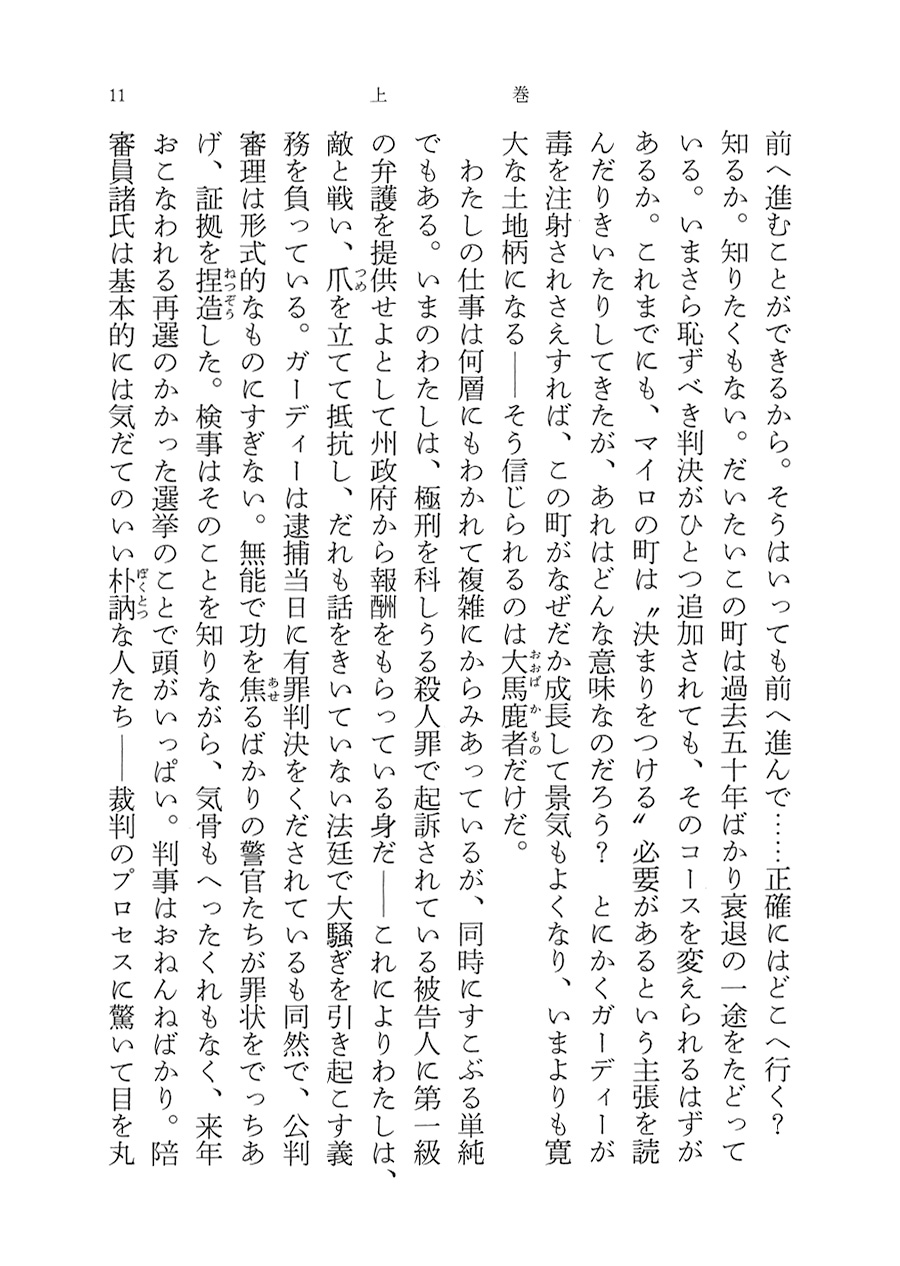 11
上
巻
前へ進むことができるから。そうはいっても前へ進んで……正確にはどこへ行く？
知るか。知りたくもない。だいたいこの町は過去五十年ばかり衰退の一途をたどって
いる。いまさら恥ずべき判決がひとつ追加されても、そのコースを変えられるはずが
あるか。これまでにも、マイロの町は〝決まりをつける〟必要があるという主張を読
んだりきいたりしてきたが、あれはどんな意味なのだろう？　とにかくガーディーが
毒を注射されさえすれば、この町がなぜだか成長して景気もよくなり、いまよりも寛
大な土地柄になる――そう信じられるのは大馬鹿者だけだ。
　わたしの仕事は何層にもわかれて複雑にからみあっているが、同時にすこぶる単純
でもある。いまのわたしは、極刑を科しうる殺人罪で起訴されている被告人に第一級
の弁護を提供せよとして州政府から報酬をもらっている身だ――これによりわたしは、
敵と戦い、爪を立てて抵抗し、だれも話をきいていない法廷で大騒ぎを引き起こす義
務を負っている。ガーディーは逮捕当日に有罪判決をくだされているも同然で、公判
審理は形式的なものにすぎない。無能で功を焦るばかりの警官たちが罪状をでっちあ
げ、証拠を捏造した。検事はそのことを知りながら、気骨もへったくれもなく、来年
おこなわれる再選のかかった選挙のことで頭がいっぱい。判事はおねんねばかり。陪
審員諸氏は基本的には気だてのいい朴訥な人たち――裁判のプロセスに驚いて目を丸